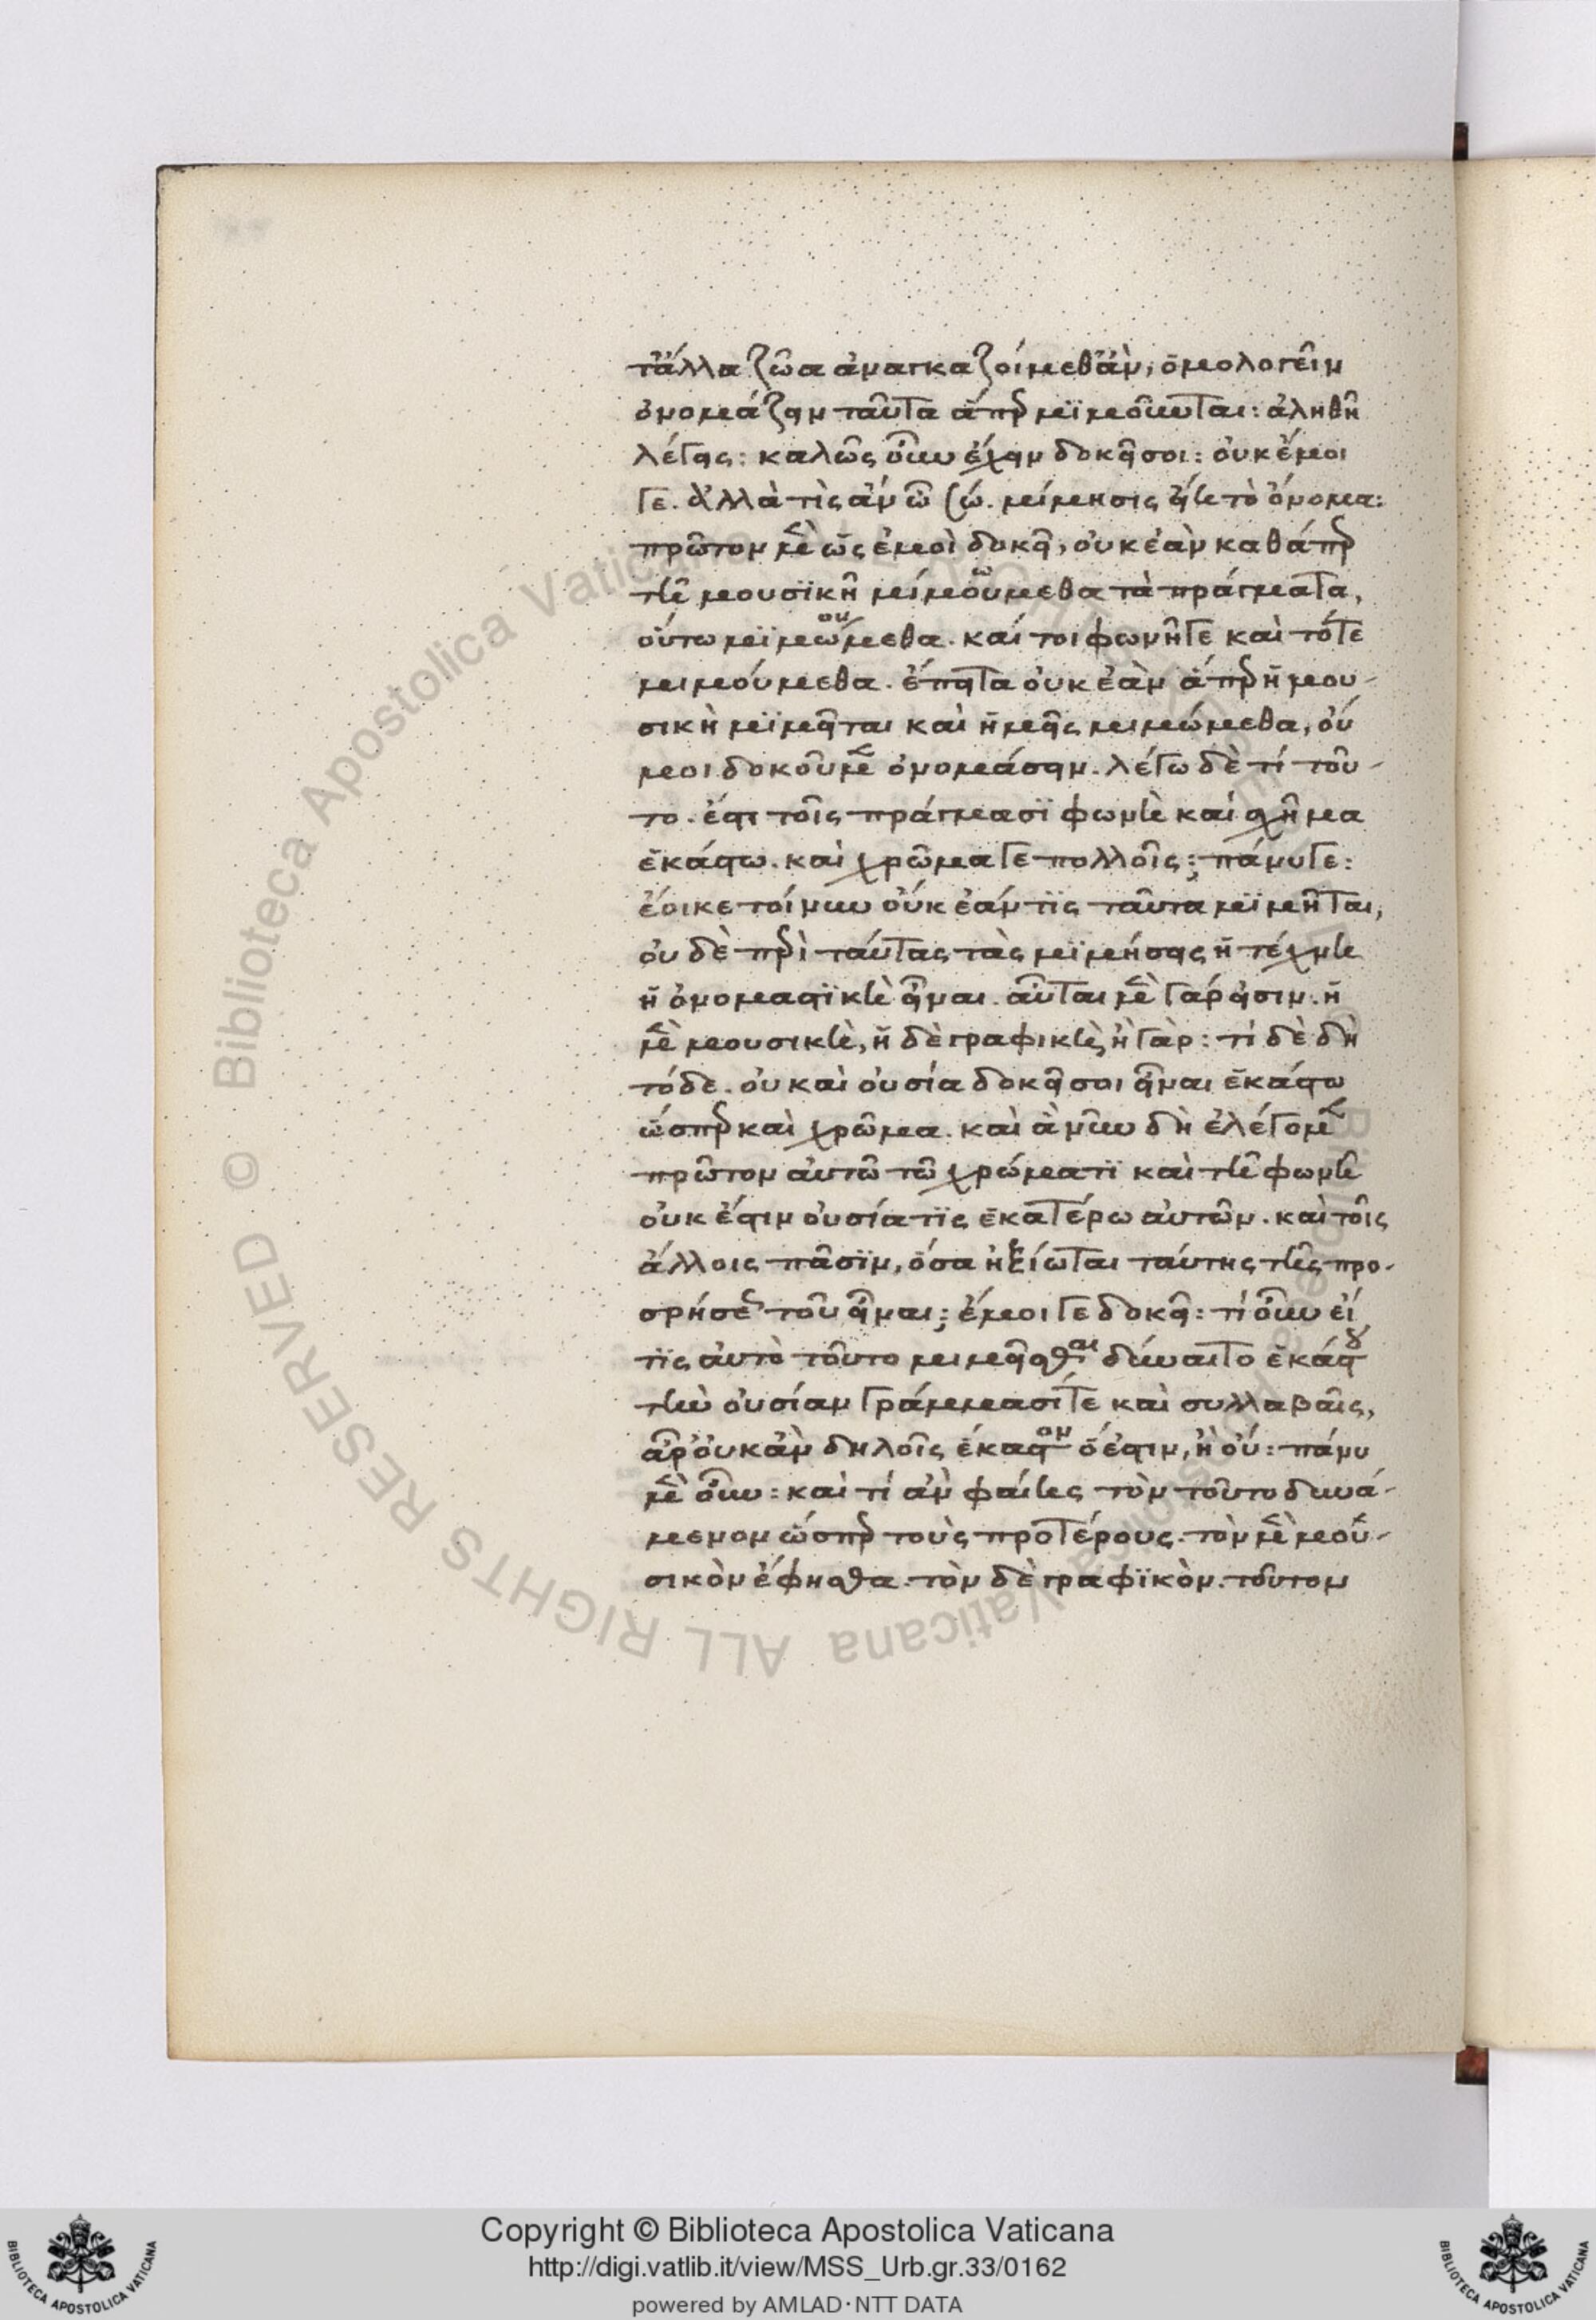 τἄλλα ζῶα ἀναγκαζοίμεθ' ἂν, ὁμολογεῖν
ὀνομάζειν ταῦτα ἅπερ μιμοῦνται: ἀληθῆ
λέγεις: καλῶς οὖν ἔχειν δοκεῖ σοι: οὐκ ἔμοι
γε. ἀλλὰ τίς ἂν ὦ σώ. μίμησις εἴη τὸ ὄνομα:
πρῶτον μὲν ὡς ἐμοὶ δοκεῖ, οὐκ ἐὰν καθάπερ
τῇ μουσικῇ μιμούμεθα τὰ πράγματα,
οὕτω μιμώμεθα. καί τοι φωνῇ γε καὶ τότε
μιμούμεθα. ἔπειτα οὐκ ἐὰν ἅπερ ἡ μου-
σικὴ μιμεῖται καὶ ἡμεῖς μιμώμεθα, οὔ
μοι δοκοῦμεν ὀνομάσειν. λέγω δὲ τί τοῦ-
το. ἔστι τοῖς πράγμασι φωνὴ καὶ σχῆμα
ἑκάστω. καὶ χρῶμα γε πολλοῖς; πάνυ γε:
ἔοικε τοίνυν οὐκ ἐάν τις ταῦτα μιμῆται,
οὐδὲ περὶ ταύτας τὰς μιμήσεις ἡ τέχνη
ἡ ὀνομαστικὴ εἶναι. αὗται μὲν γάρ εἰσιν. ἡ
μὲν μουσικὴ, ἡ δὲ γραφικὴ, ἦ γάρ: τί δὲ δὴ
τόδε. οὐ καὶ οὐσία δοκεῖ σοι εἶναι ἑκάστω
ὥσπερ καὶ χρῶμα. καὶ ἃ νῦν δὴ ἐλέγομεν
πρῶτον αὐτῶ τῶ χρώματι καὶ τῇ φωνῇ
οὐκ ἔστιν οὐσία τις ἑκατέρω αὐτῶν. καὶ τοῖς
ἄλλοις πᾶσιν, ὅσα ἠξίωται ταύτης τῆς προ-
σρήσεως τοῦ εἶναι; ἔμοι γε δοκεῖ: τί οὖν εἴ
τις αὐτὸ τοῦτο μιμεῖσθαι δύναιτο ἑκάστου
τὴν οὐσίαν γράμμασί τε καὶ συλλαβαῖς,
ἆρ' οὐκ ἂν δηλοῖς ἕκαστον ὅ ἐστιν, ἢ οὔ: πάνυ
μὲν οὖν: καὶ τί ἂν φαίης τὸν τοῦτο δυνά-
μενον ὥσπερ τοὺς προτέρους. τὸν μὲν μου-
σικὸν ἔφησθα. τὸν δὲ γραφικὸν. τοῦτον
© Biblioteca Apostolica Vaticana ALL RIGHTS RESERVED
Copyright © Biblioteca Apostolica Vaticana
http://digi.vatlib.it/view/MSS_Urb.gr.33/0162
powered by AMLAD·NTT DATA
BIBLIOTECA APOSTOLICA VATICANA
BIBLIOTECA APOSTOLICA VATICANA